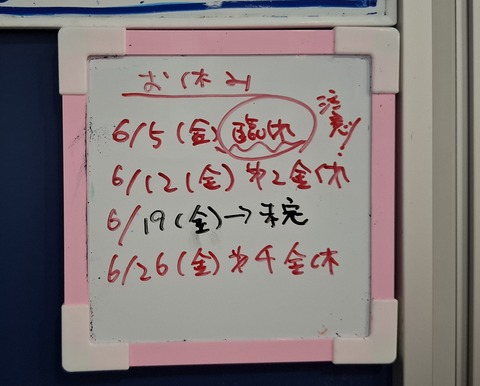 お休み
6/5(金)臨休 注意!
6/12(金)第2金休
6/19(金)→未定
6/26(金)第4金休